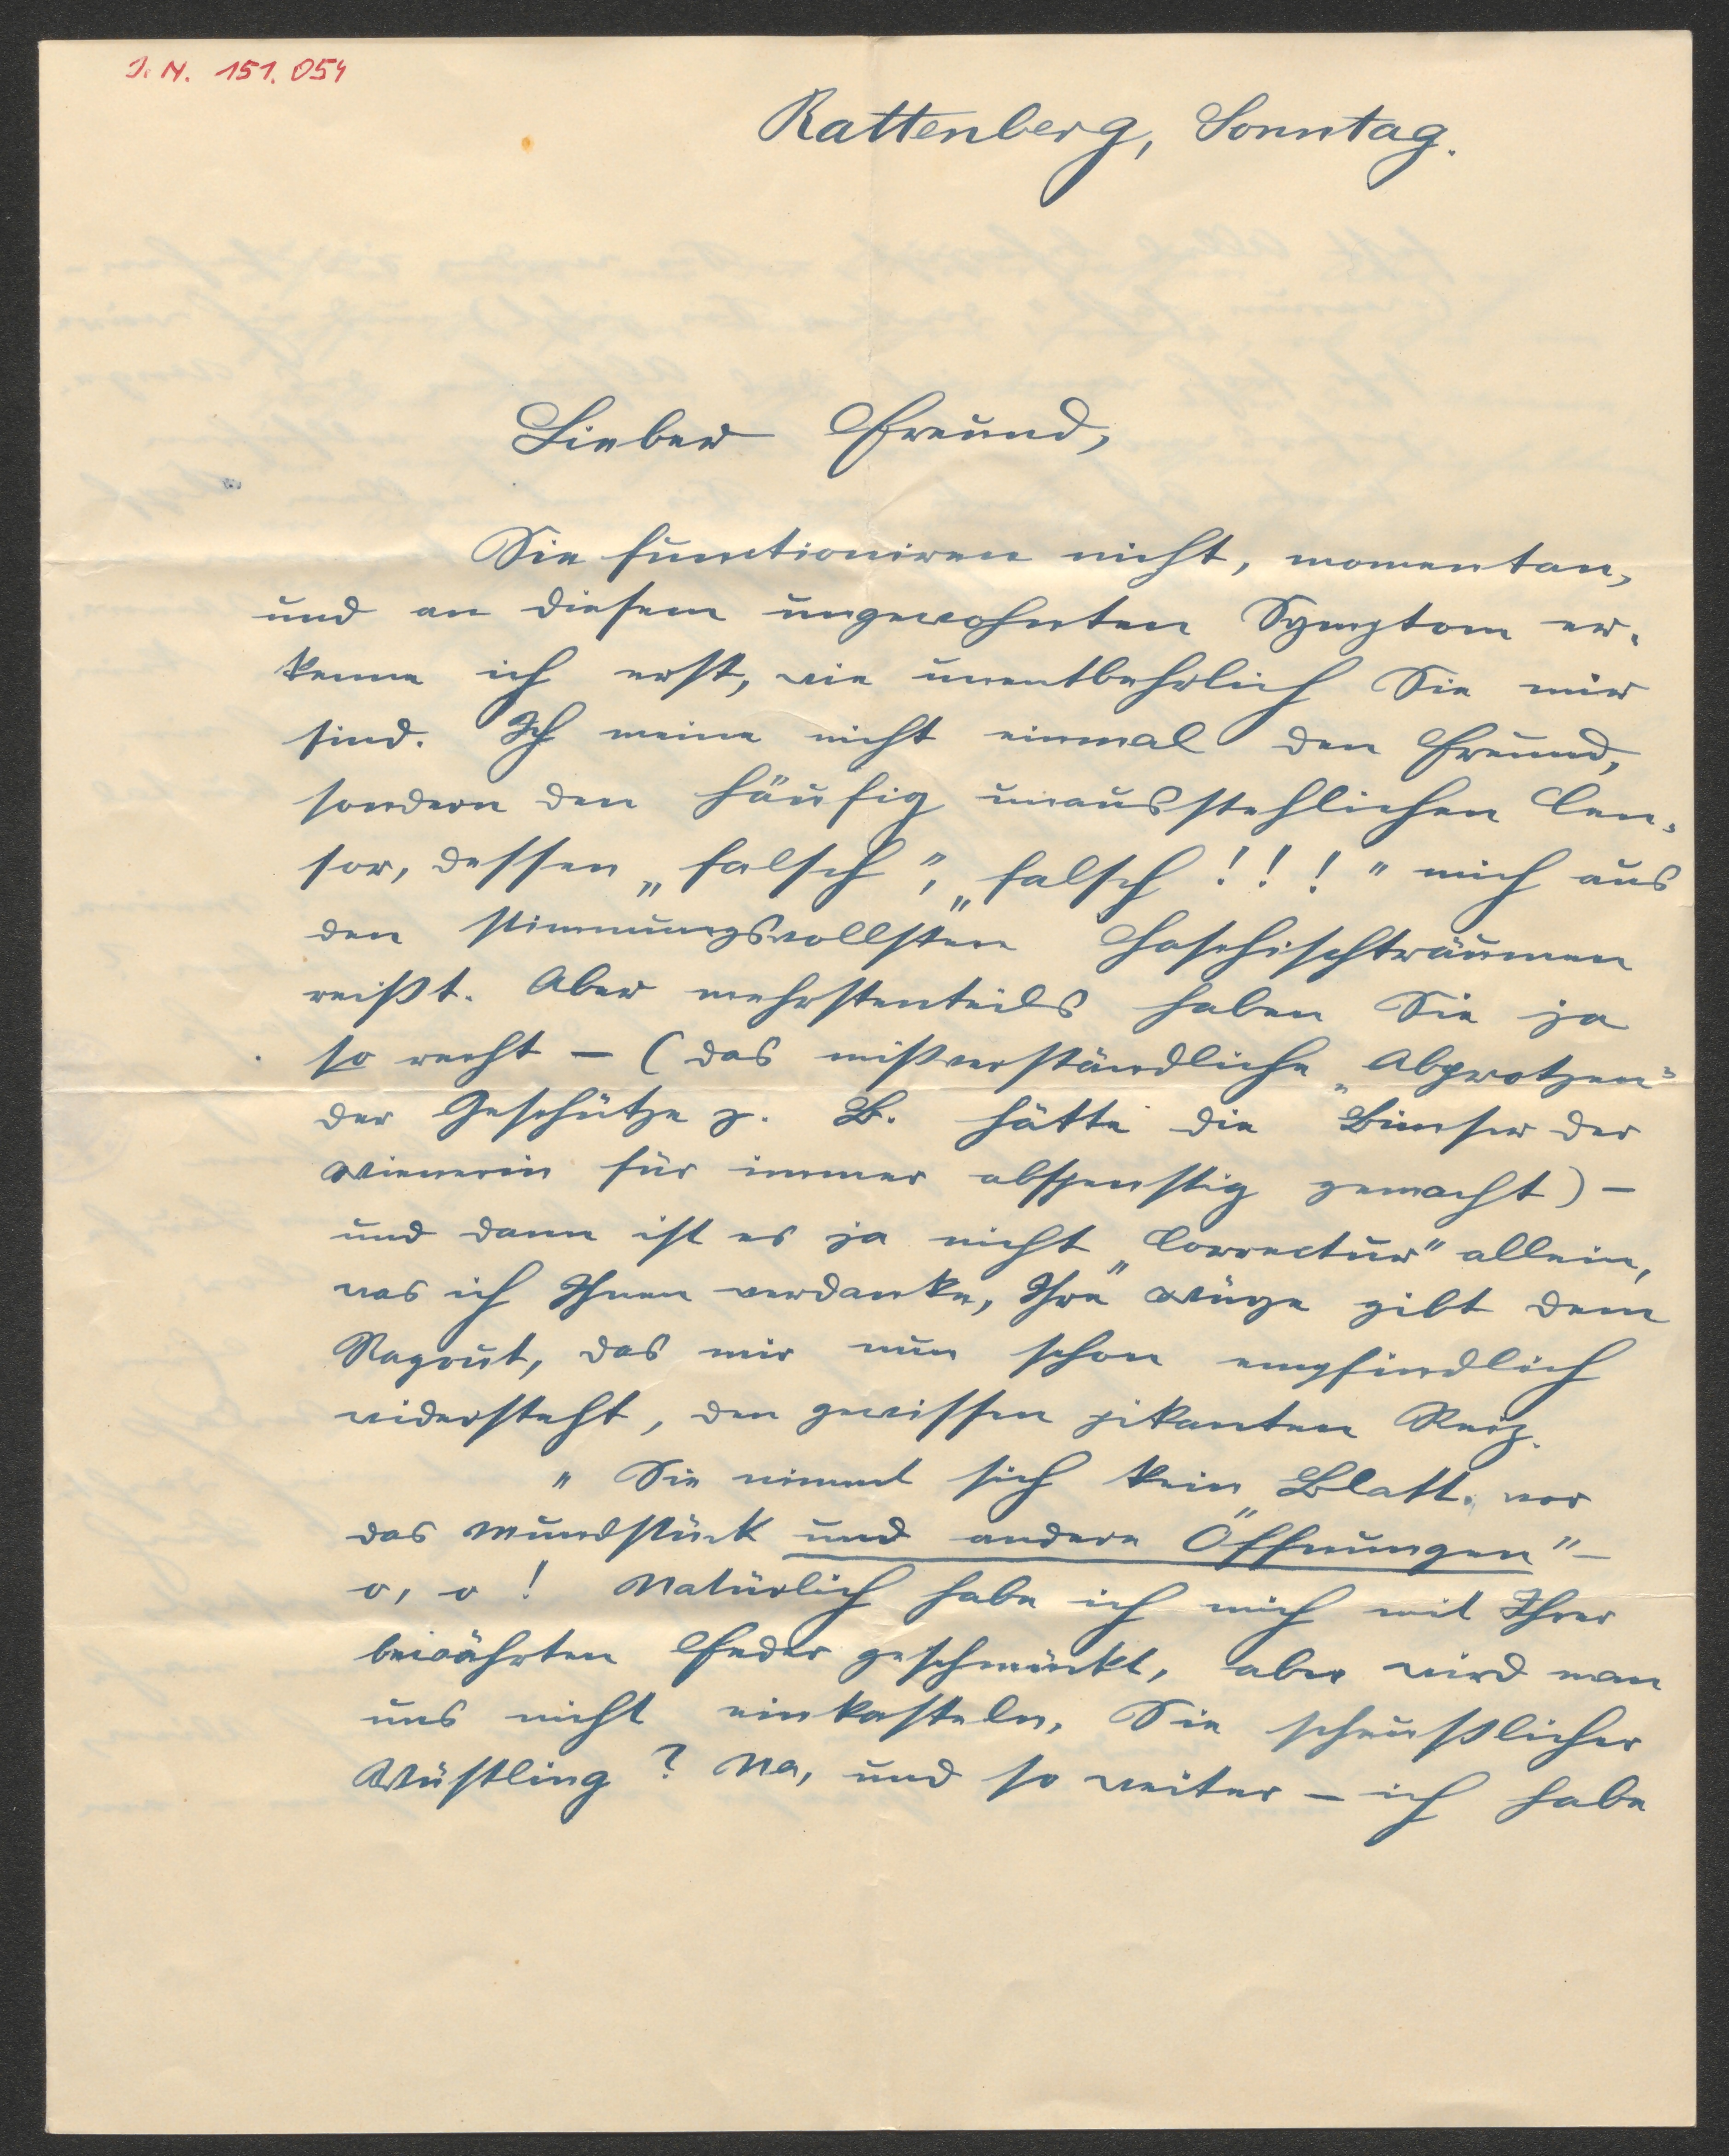 J. N. 151.054
Rattenberg, Sonntag.
Lieber Freund,
Sie functioniren nicht, momentan,
und an diesem ungewohnten Symptom er-
kenne ich erst, wie unentbehrlich Sie mir
sind. Ich meine nicht einmal den Freund,
sondern den häufig unausstehlichen Cen-
sor, dessen „falsch", „falsch!!!" mich aus
den stimmungsvollsten Haschischträumen
reißt. Aber mehrstenteils haben Sie ja
so recht – (das mißverständliche „Abprotzen"
der Geschütze z. B. hätte die Leser der
Wienerin für immer abspenstig gemacht) –
und dann ist es ja nicht „Correctur" allein,
was ich Ihnen verdanke, Ihre Würze gibt dem
Ragout, das mir nun schon empfindlich
widersteht, den gewissen pikanten Reiz.
„Sie nimmt sich kein Blatt vor
das Mundstück und andere Öffnungen" –
o, o! Natürlich habe ich mich mit Ihrer
bewährten Feder geschmückt, aber wird man
uns nicht einkasteln, Sie scheußlicher
Wüstling? Na, und so weiter – ich habe